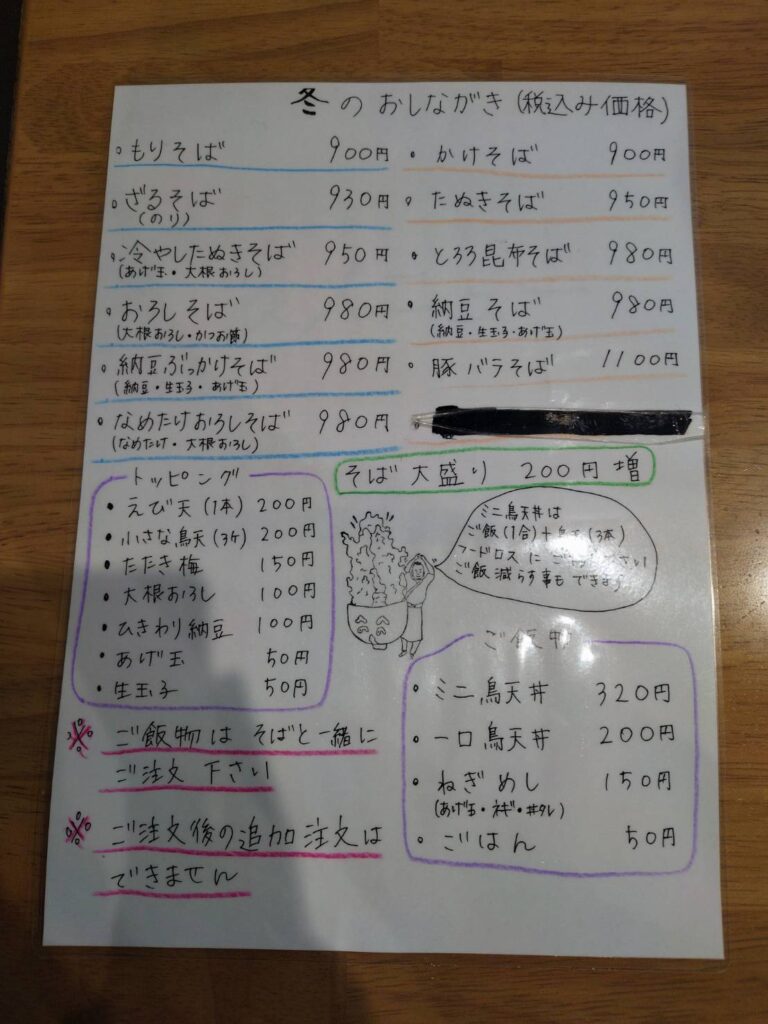 冬のおしながき(税込み価格)
・もりそば 900円
・ざるそば 930円
(のり)
・冷やしたぬきそば 950円
(あげ玉・大根おろし)
・おろしそば 980円
(大根おろし・かつお節)
・納豆ぶっかけそば 980円
(納豆・生玉子・あげ玉)
・なめたけおろしそば 980円
(なめたけ・大根おろし)
・かけそば 900円
・たぬきそば 950円
・とろろ昆布そば 980円
・納豆そば 980円
(納豆・生玉子・あげ玉)
・豚バラそば 1100円
そば大盛り 200円増
トッピング
・えび天(1本) 200円
・小さな鳥天(3ケ) 200円
・たたき梅 150円
・大根おろし 100円
・ひきわり納豆 100円
・あげ玉 50円
・生玉子 50円
ミニ鳥天丼は
ご飯(1合)+ (3本)
フードロスに ご さい
ご飯減らす事もできます
ご飯物
・ミニ鳥天丼 320円
・一口鳥天丼 200円
・ねぎめし 150円
(あげ玉・ネギ・丼タレ)
・ごはん 50円
※ ご飯物はそばと一緒に
ご注文下さい
※ ご注文後の追加注文は
できません